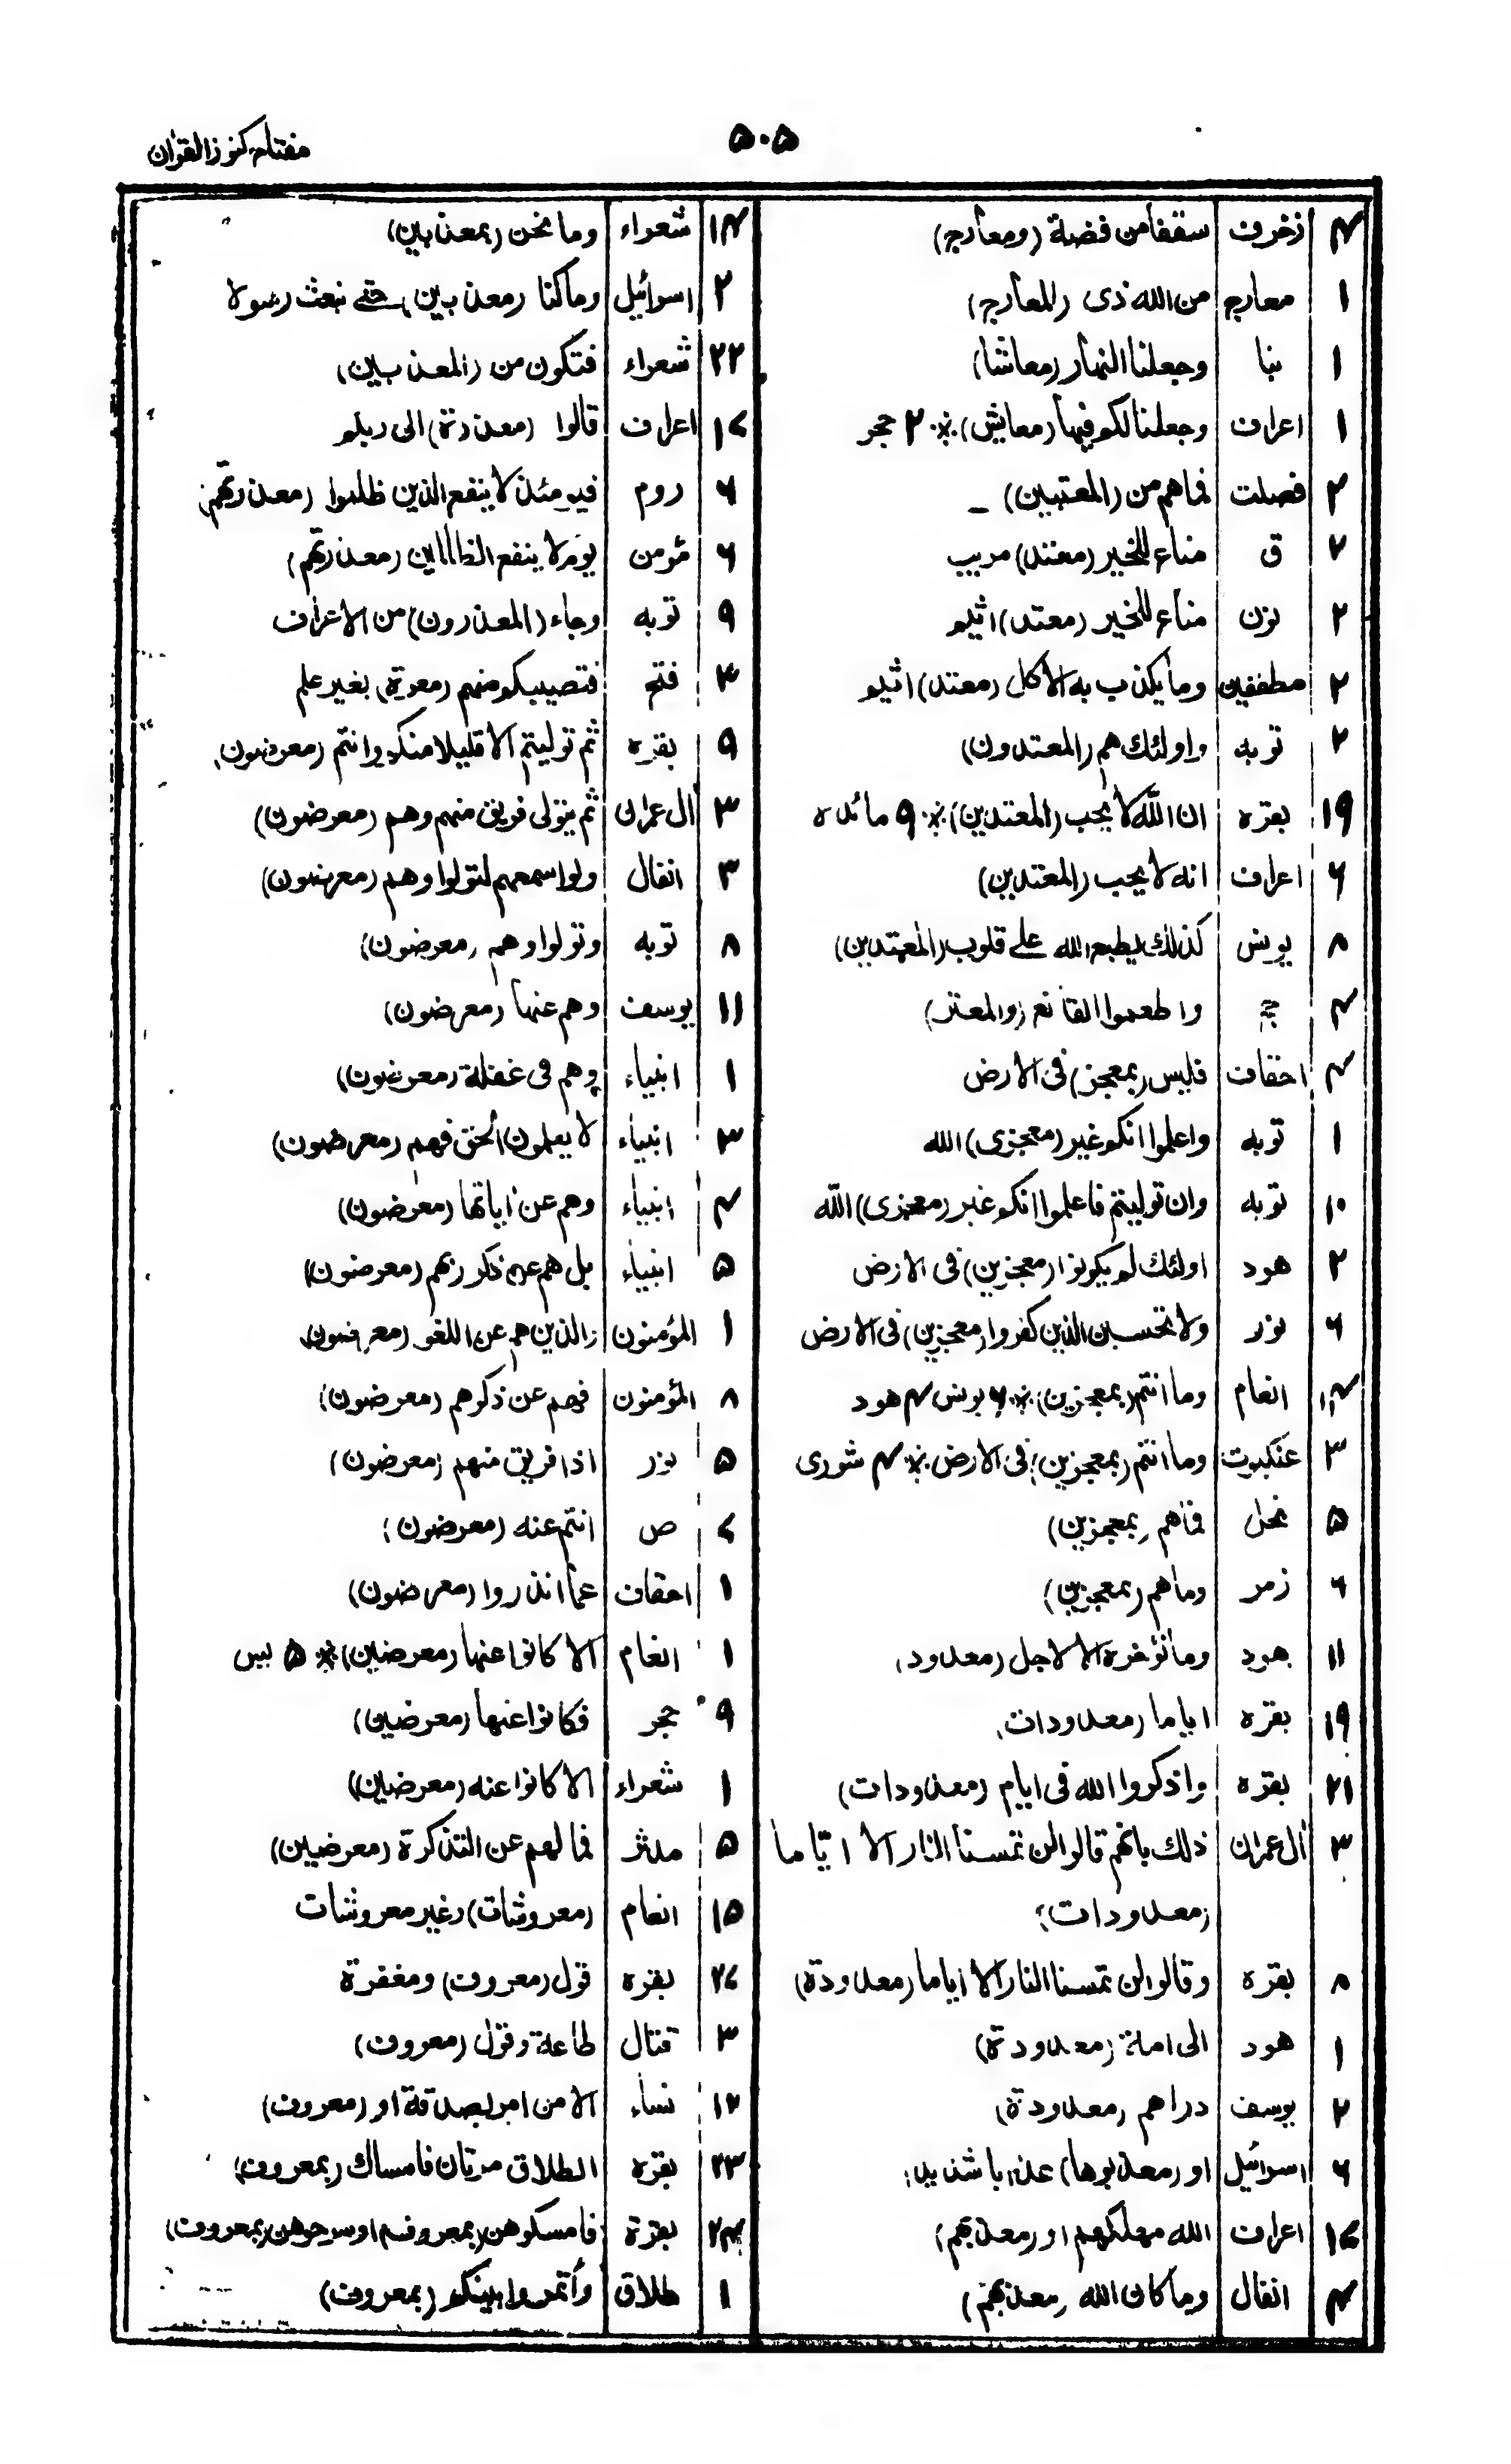 ۵۰۵
مفتاح کنوز القرآن
۴ زخرف سقفا من فضة (ومعارج)
۱ معارج من الله ذی (المعارج)
۱ نبا وجعلنا النهار (معاشا)
۱ اعراف وجعلنا لکم فیها (معایش) ※ ۲ حجر
۳ فصلت فماهم من (المعتبین)
۲ ق مناع للخیر (معتد) مریب
۲ نون مناع للخیر (معتد) اثیم
۲ مطففین وما یکذب به الا کل (معتد) اثیم
۲ توبه واولئك هم (المعتدون)
۱۹ بقره ان الله لا یحب (المعتدین) ※ ۹ مائده
۶ اعراف انه لا یحب (المعتدین)
۸ یونس کذلك یطبع الله علی قلوب (المعتدین)
۴ حج واطعموا القانع (والمعتر)
۴ احقاف فلیس (بمعجز) فی الارض
۱ توبه واعلموا انکم غیر (معجزی) الله
۱۰ توبه وان تولیتم فاعلموا انکم غیر (معجزی) الله
۲ هود اولئك لم یکونوا (معجزین) فی الارض
۶ نور ولا تحسبن الذین کفروا (معجزین) فی الارض
انعام وما انتم (بمعجزین) ※ ۶ یونس ۴ هود
۳ عنکبوت وما انتم (بمعجزین) فی الارض ※ ۴ شوری
۵ نحل فماهم (بمعجزین)
۶ زمر وماهم (بمعجزین)
۱۱ هود وما نؤخره الا لاجل (معدود)
۱۹ بقره ایاما (معدودات)
۲۱ بقره واذکروا الله فی ایام (معدودات)
۳ آل عمران ذلك بانهم قالوا لن تمسنا النار الا ایاما
(معدودات)
۸ بقره وقالوا لن تمسنا النار الا ایاما (معدودة)
۱ هود الی امة (معدودة)
۲ یوسف دراهم (معدودة)
۶ اسرائیل او (معذبوها) عذابا شدیدا
۱۶ اعراف الله مهلکهم او (معذبهم)
۴ انفال وما کان الله (معذبهم)
۱۴ شعراء وما نحن (بمعذبین)
۲ اسرائیل وما کنا (معذبین) حتی نبعث رسولا
۲۲ شعراء فتکون من (المعذبین)
اعراف قالوا (معذرة) الی ربکم
۶ روم فیومئذ لا ینفع الذین ظلموا (معذرتهم)
۶ مؤمن یوم لا ینفع الظالمین (معذرتهم)
۹ توبه وجاء (المعذرون) من الاعراف
۳ فتح فتصیبکم منهم (معرة) بغیر علم
۹ بقره ثم تولیتم الا قلیلا منکم وانتم (معرضون)
۳ آل عمران ثم یتولی فریق منهم وهم (معرضون)
۳ انفال ولو اسمعهم لتولوا وهم (معرضون)
۸ توبه وتولوا وهم (معرضون)
۱۱ یوسف وهم عنها (معرضون)
۱ انبیاء وهم فی غفلة (معرضون)
۳ انبیاء لا یعلمون الحق فهم (معرضون)
۴ انبیاء وهم عن آیاتها (معرضون)
۵ انبیاء بل هم عن ذکر ربهم (معرضون)
۱ المؤمنون والذین هم عن اللغو (معرضون)
۸ المؤمنون فهم عن ذکرهم (معرضون)
۵ نور اذا فریق منهم (معرضون)
ص انتم عنه (معرضون)
۱ احقاف عما انذروا (معرضون)
۱ انعام الا کانوا عنها (معرضین) ※ ۵ یس
۹ حجر فکانوا عنها (معرضین)
۱ شعراء الا کانوا عنه (معرضین)
۵ مدثر فما لهم عن التذکرة (معرضین)
۱۵ انعام (معروشات) وغیر معروشات
بقره قول (معروف) ومغفرة
۳ قتال طاعة وقول (معروف)
۱۲ نساء الا من امر بصدقة او (معروف)
۲۳ بقره الطلاق مرتان فامساك (بمعروف)
بقرة فامسکوهن (بمعروف) او سرحوهن (بمعروف)
۱ طلاق وأتمروا بینکم (بمعروف)